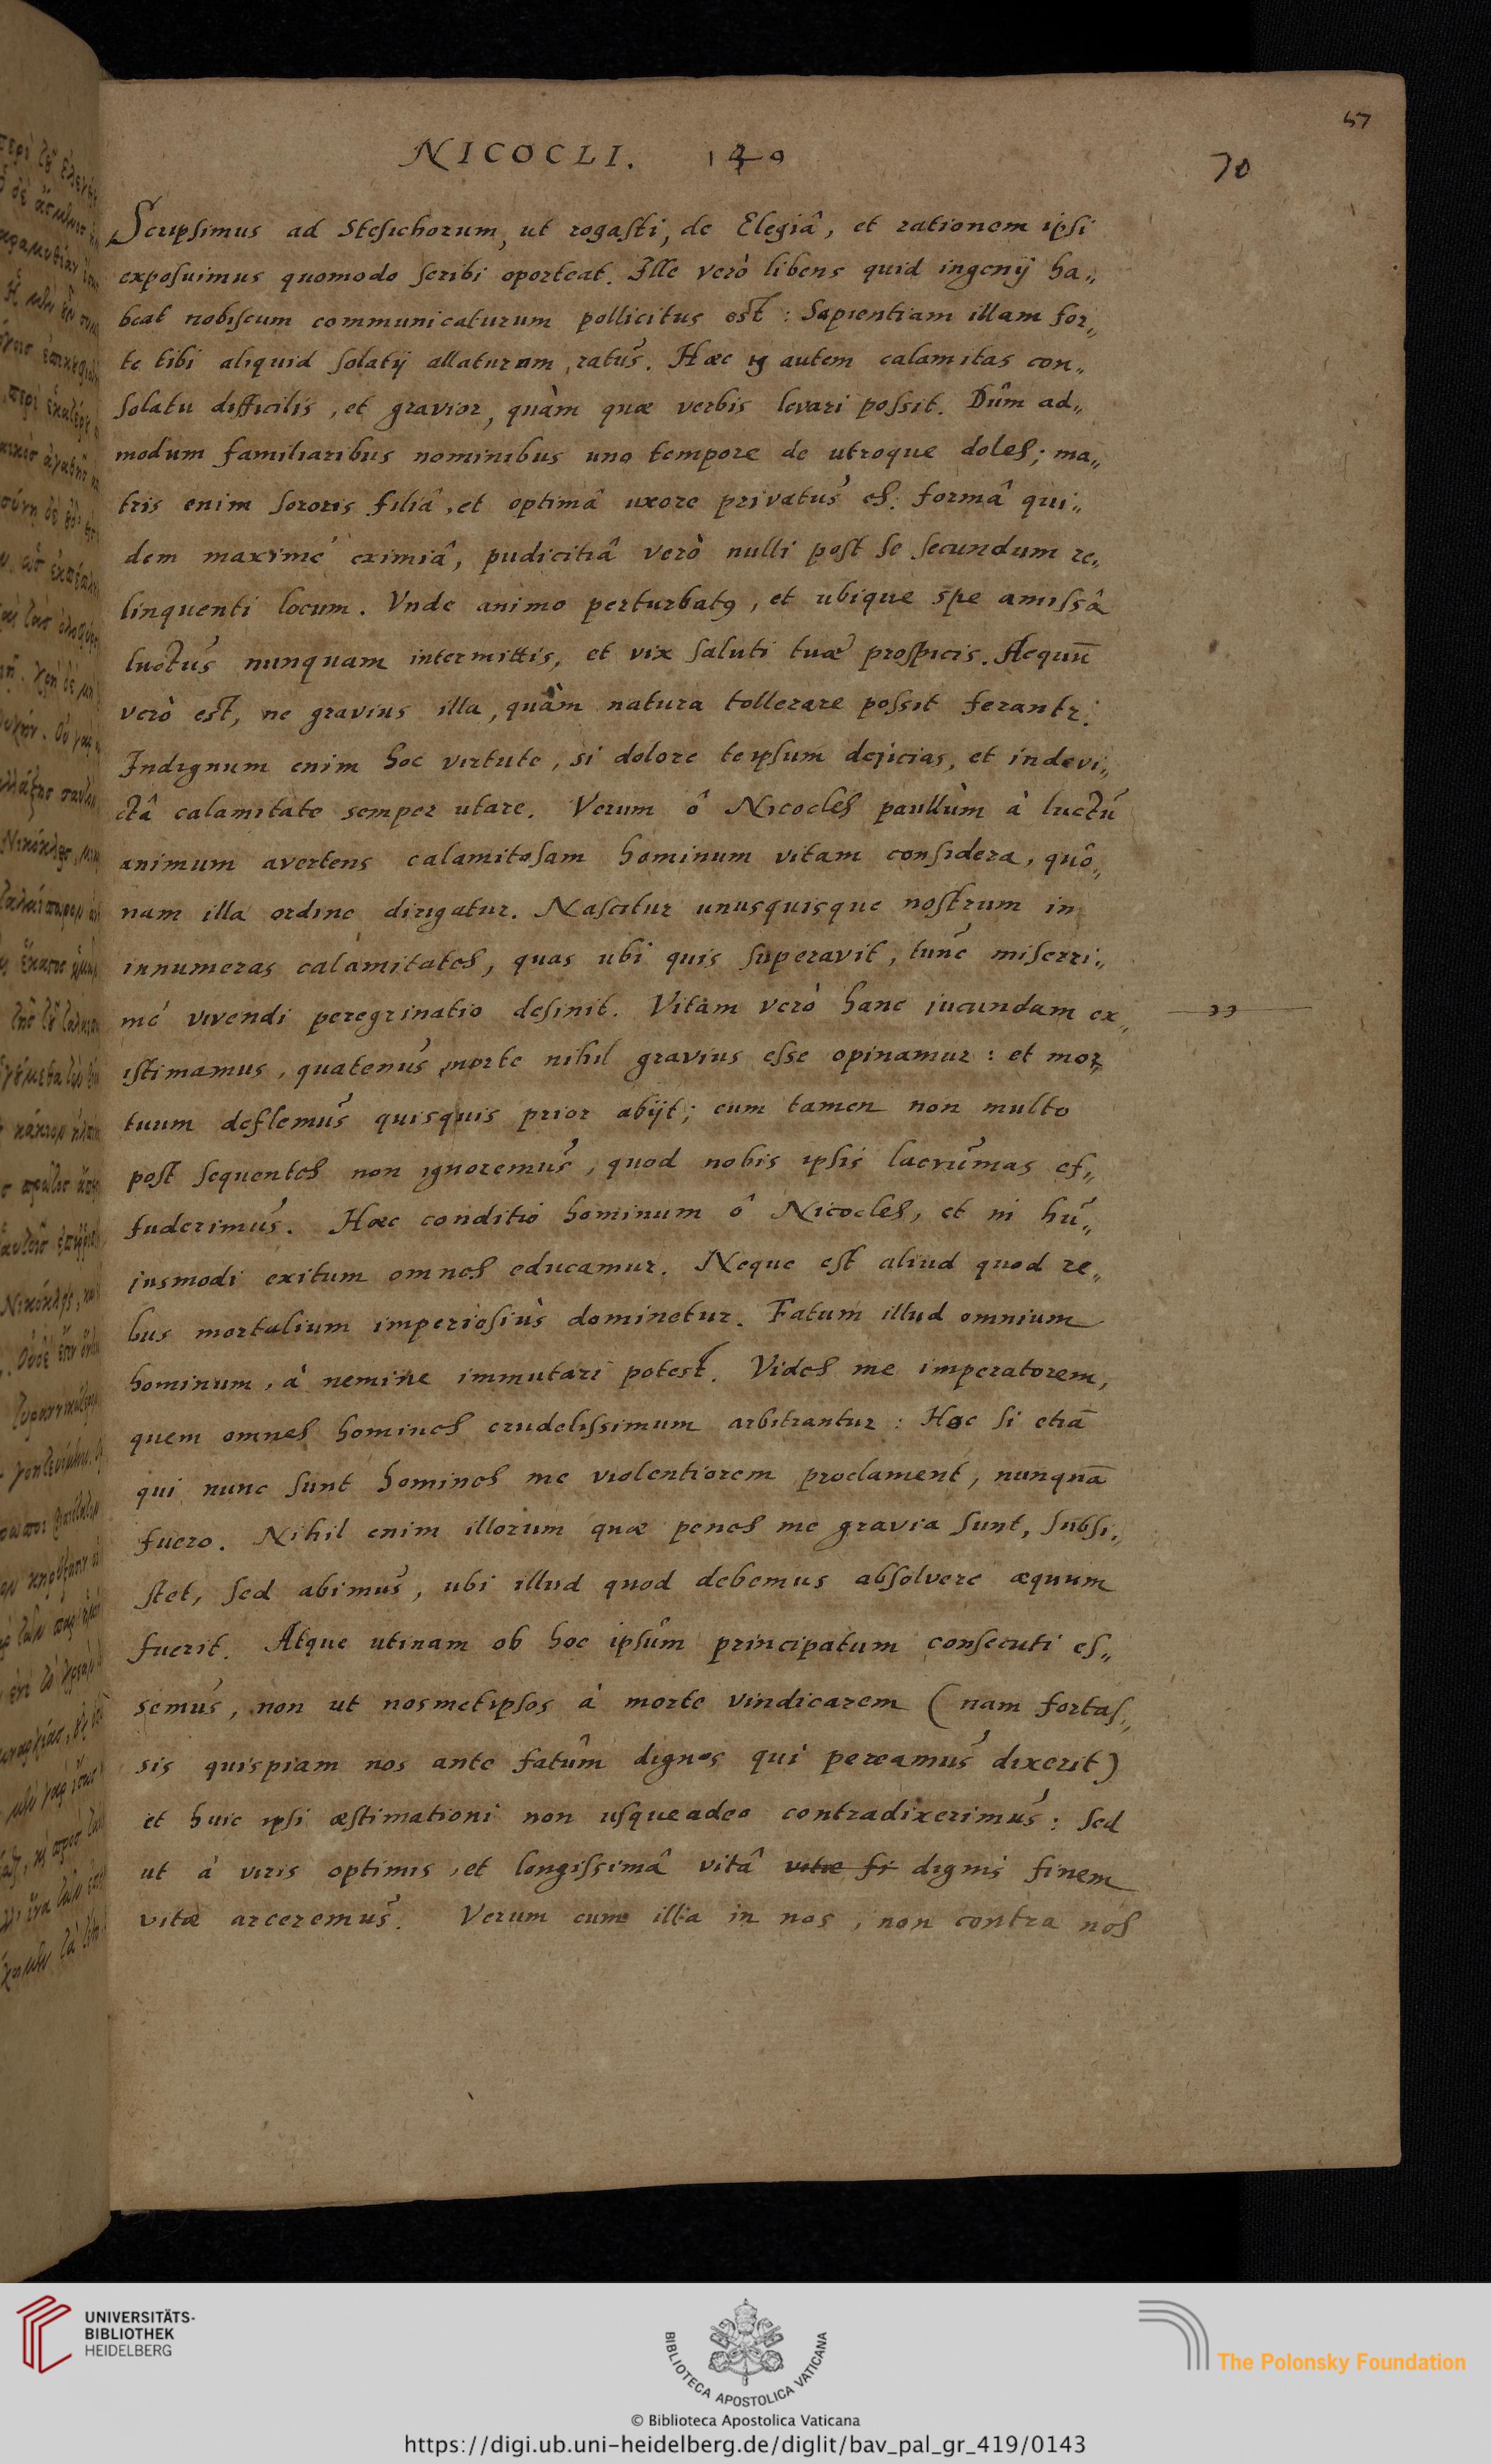 57
NICOCLI. 140
70
Scripsimus ad Stesichorum, ut rogasti, de Elegiâ, et rationem ipsi
exposuimus quomodo scribi oporteat. Ille verò libens quid ingenij ha„
beat nobiscum communicaturum pollicitus est : Sapientiam illam for„
te tibi aliquid solatij allaturam, ratus. Hæc autem calamitas con„
solatu difficilis, et gravior, quàm quæ verbis levari possit. Dûm ad„
modum familiaribus nominibus uno tempore de utroque doles; ma„
tris enim sororis filiâ, et optimâ uxore privatus es. formâ qui„
dem maximé eximiâ, pudicitiâ verò nulli post se secundum re„
linquenti locum. Vnde animo perturbatꝯ, et ubique spe amissâ
luctus nunquam intermittis, et vix saluti tuæ prospicis. Aequū
verò est, ne gravius illa, quàm natura tollerare possit ferantr.
Indignum enim hoc virtute, si dolore teipsum dejicias, et indevi„
ctâ calamitate semper utare. Verum ô Nicocles paullùm à luctu
animum avertens calamitosam hominum vitam considera, quô„
nam illa ordine dirigatur. Nascitur unusquisque nostrum in
innumeras calamitates, quas ubi quis superavit, tunc miserri„
mé vivendi peregrinatio desinit. Vitam verò hanc jucundam ex„
istimamus, quatenus morte nihil gravius esse opinamur : et mor„
tuum deflemus quisquis prior abijt; cum tamen non multo
post sequentes non ignoremus, quod nobis ipsis lacrumas ef„
fuderimus. Hæc conditio hominum ô Nicocles, et in hu„
jusmodi exitum omnes educamur. Neque est aliud quod re„
bus mortalium imperiosiùs dominetur. Fatum illud omnium
hominum, à nemine immutari potest. Vides me imperatorem,
quem omnes homines crudelissimum arbitrantur : Hoc si etiā
qui nunc sunt homines me violentiorem proclament, nunquā
fuero. Nihil enim illorum quæ penes me gravia sunt, subsi„
stet, sed abimus, ubi illud quod debemus absolvere æquum
fuerit. Atque utinam ob hoc ipsûm principatum consecuti es„
semus, non ut nosmetipsos à morte vindicarem (nam fortas„
sis quispiam nos ante fatûm dignos qui pereamus dixerit)
et huic ipsi æstimationi non usqueadeo contradixerimus : sed
ut à viris optimis, et longissimâ vitâ vitæ fi dignis finem
vitæ arceremus. Verum cum illa in nos, non contra nos
UNIVERSITÄTS-
BIBLIOTHEK
HEIDELBERG
BIBLIOTECA APOSTOLICA VATICANA
The Polonsky Foundation
© Biblioteca Apostolica Vaticana
https://digi.ub.uni-heidelberg.de/diglit/bav_pal_gr_419/0143